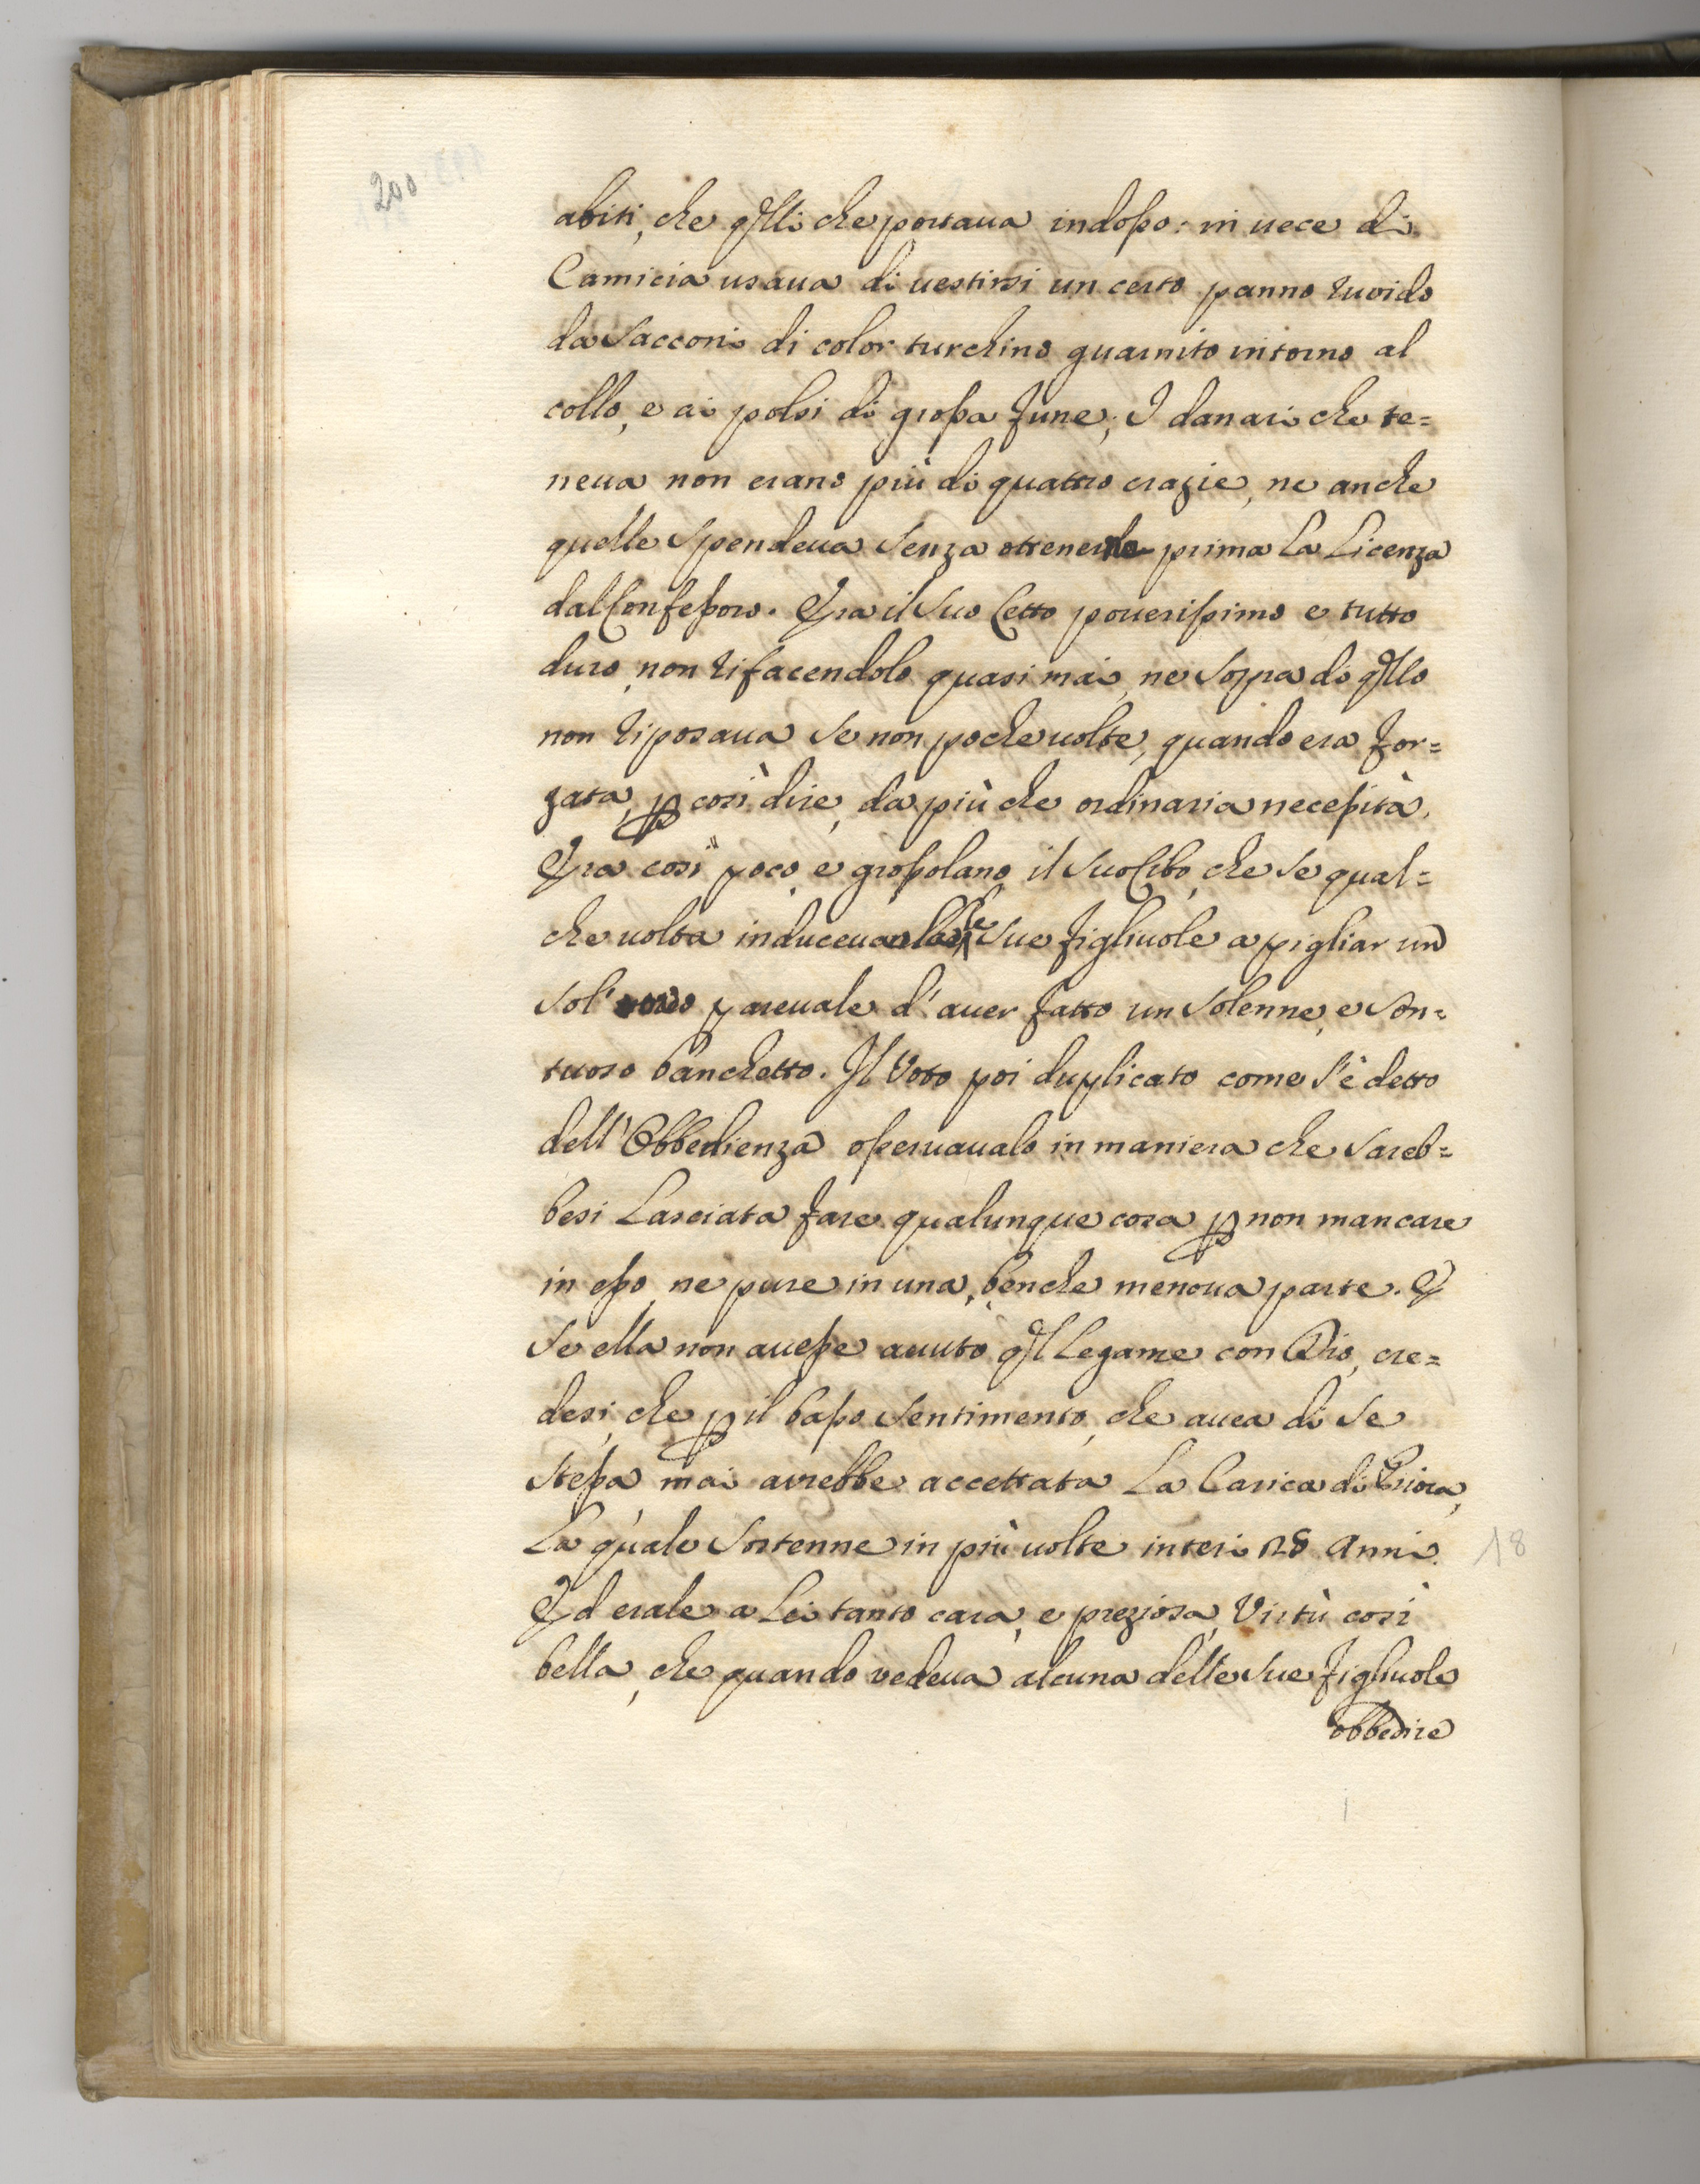 200
abiti, che qsti che portaua indosso: in uece di
Camicia usaua di uestirsi un certo panno ruuido
da Sacconi di color turchino guarnito intorno al
collo, e ai polsi di grossa fune; I danari che te=
neua non erano più di quattro crazie, ne anche
quelle Spendeua Senza ottenerne prima La Licenza
dal Confessoro. Era il Suo Letto pouerissimo e tutto
duro, non rifacendolo quasi mai, ne Sopra di qllo
non riposaua Se non poche uolte, quando era for=
zata, p così dire, da più che ordinaria necessità.
Era così poco, e grossolano il Suo Cibo, che Se qual=
che uolta induceuanla le Sue figliuole a pigliar un
Sol' uouo pareuale d'auer fatto un Solenne, e Son=
tuoso banchetto. Il Voto poi duplicato come s'è detto
dell'Obbedienza osseruaualo in maniera che Sareb=
besi Lasciata fare qualunque cosa p non mancare
in esso ne pure in una, benche menoma parte. E
Se ella non auesse auuto qsl Legame con Dio, cre=
desi, che p il basso Sentimento, che auea di Se
Stessa mai avrebbe accettata La Carica di Priora,
La quale Sostenne in più uolte interi 18 Anni. 18
Ed erale a Lei tanto cara, e preziosa Virtù così
bella, che quando vedeua alcuna delle Sue figliuole
obbedire